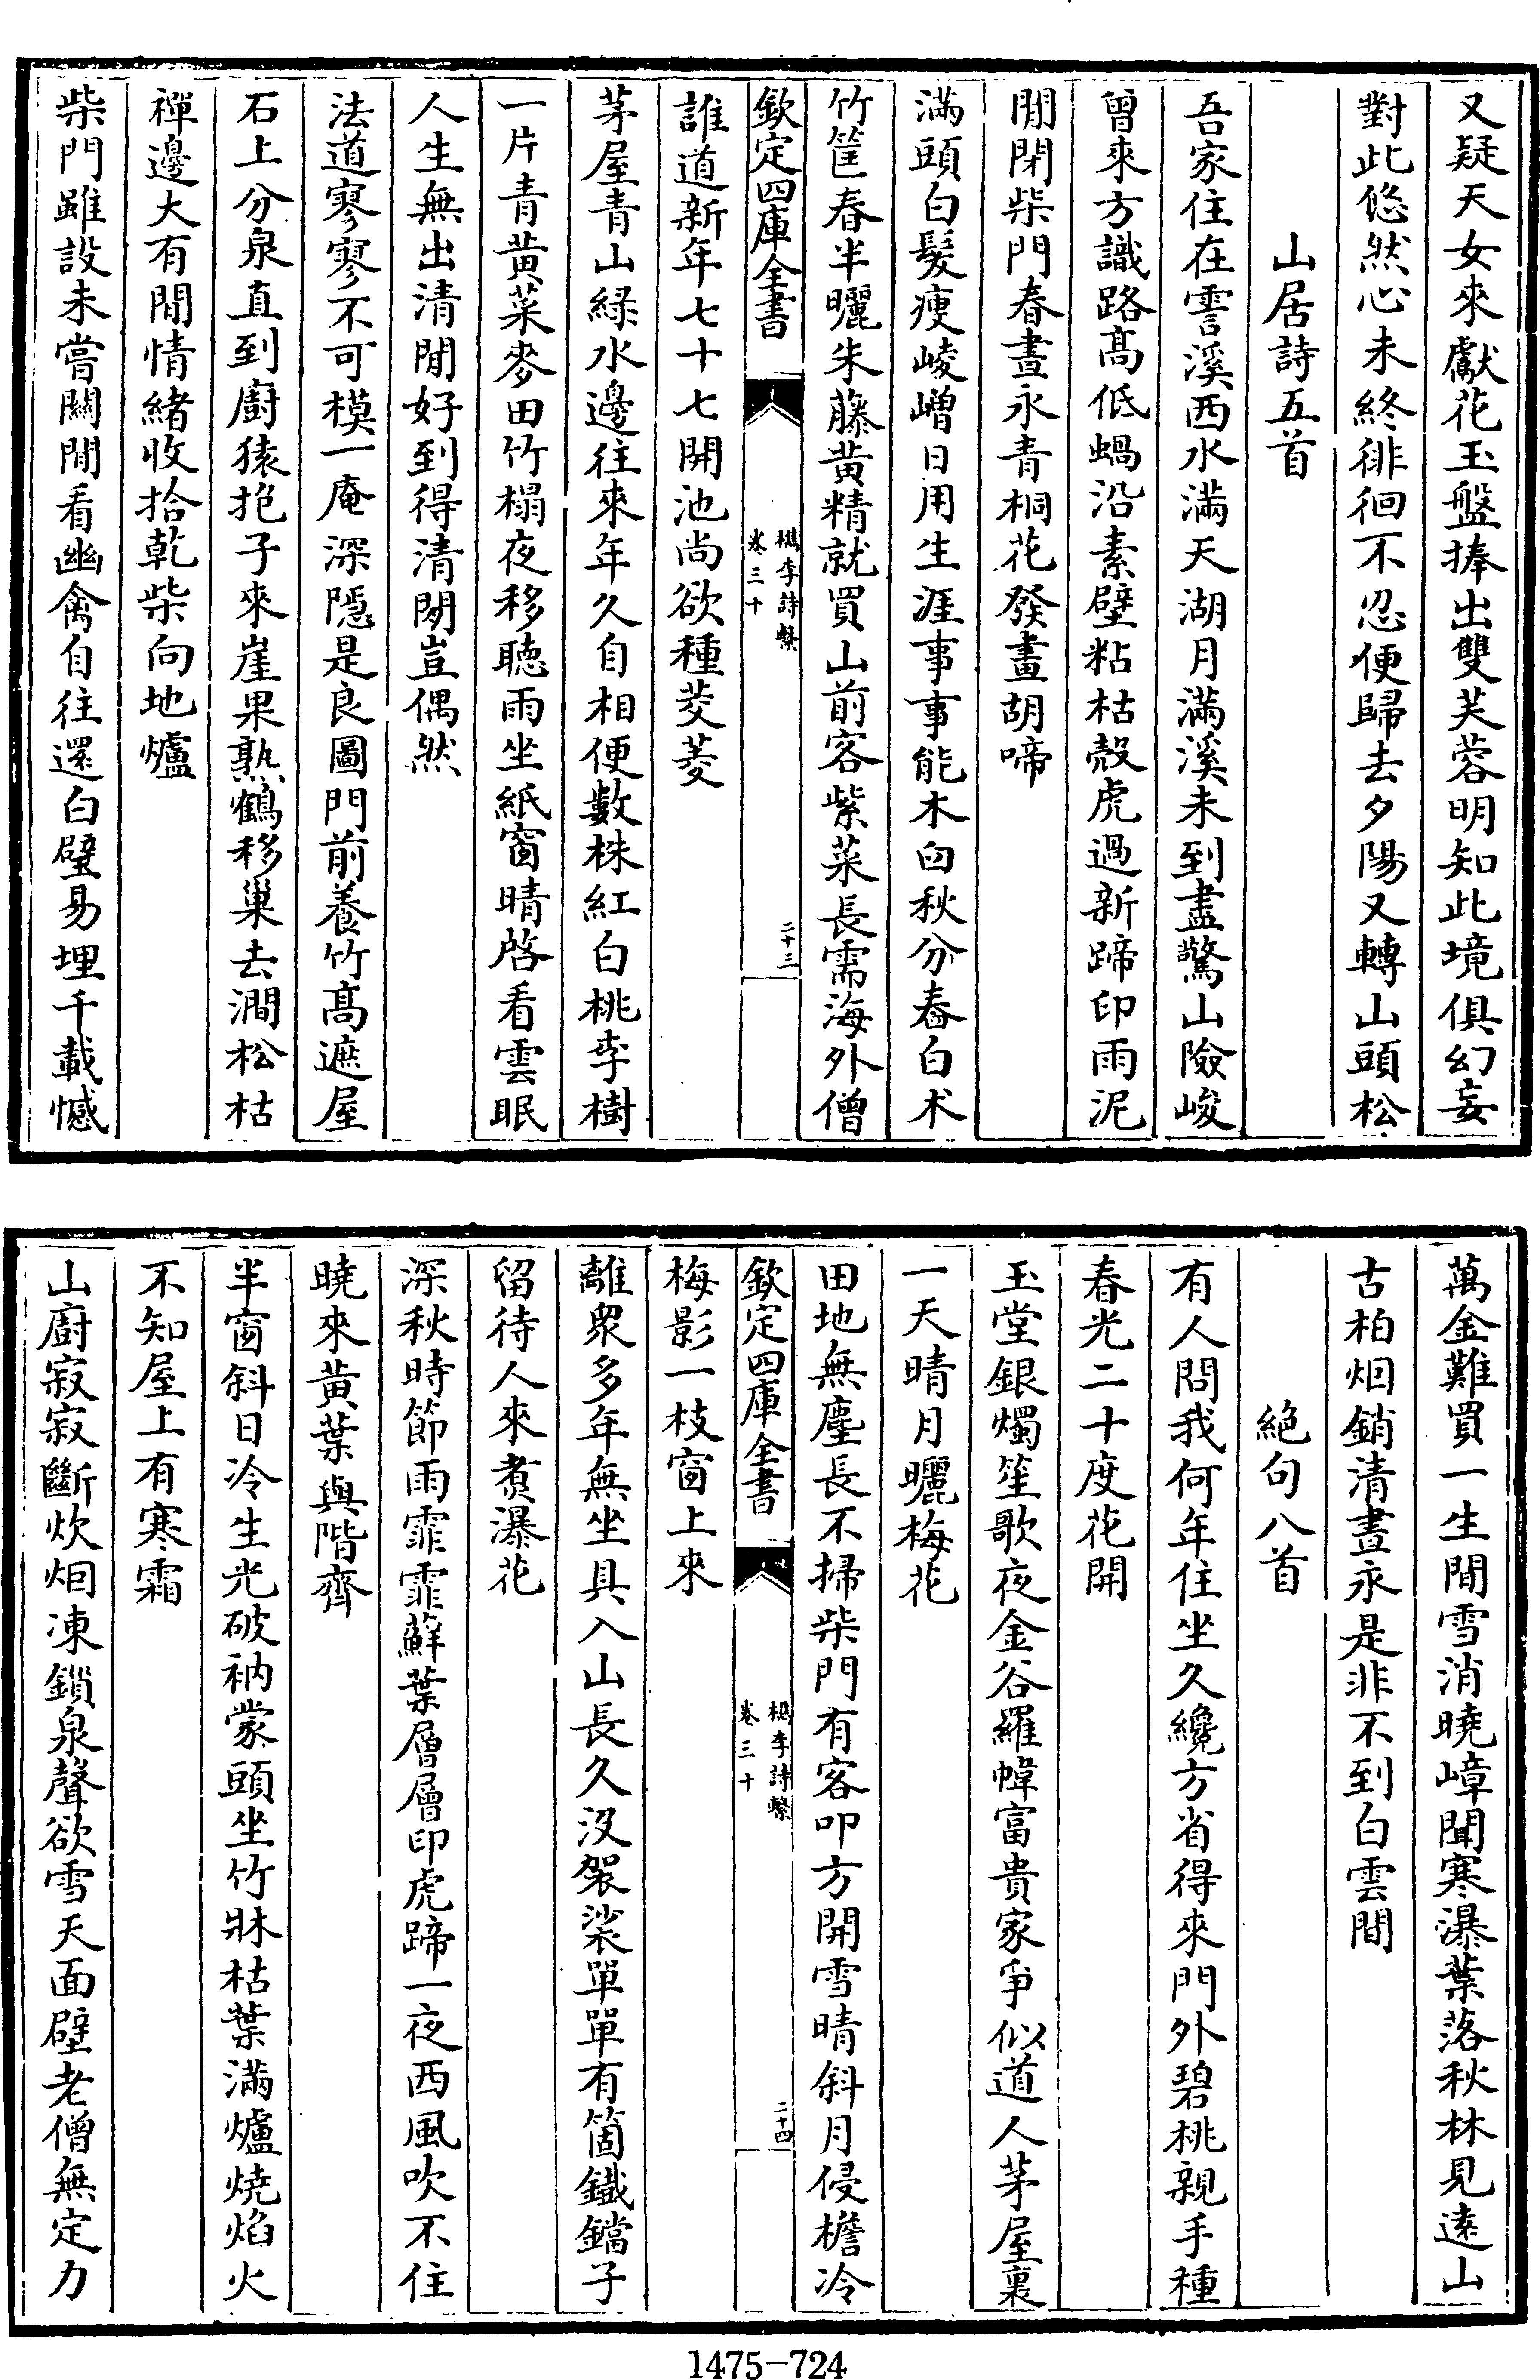 又疑天女來獻花玉盤捧出雙芙蓉明知此境俱幻妄
對此悠然心未終徘徊不忍便歸去夕陽又轉山頭松
山居詩五首
吾家住在霅溪西水滿天湖月滿溪未到盡驚山險峻
曾來方識路髙低蝸沿素壁粘枯殻虎過新蹄印雨泥
閒閉柴門春晝永青桐花發畫胡啼
滿頭白髮瘦崚嶒日用生涯事事能木臼秋分舂白朮
竹筐春半曬朱藤黃精就買山前客紫菜長需海外僧
欽定四庫全書
檇李詩繫
卷三十
二十三
誰道新年七十七開池尚欲種茭菱
茅屋青山緑水邊往來年久自相便數株紅白桃李樹
一片青黃菜麥田竹榻夜移聴雨坐紙窗晴啓看雲眠
人生無出清閒好到得清閒豈偶然
法道寥寥不可模一庵深隠是良圖門前養竹髙遮屋
石上分泉直到廚猿抱子來崖果熟鶴移巢去澗松枯
禪邊大有閒情緒收拾乾柴向地爐
柴門雖設未嘗關閒看幽禽自往還白璧易埋千載憾
萬金難買一生閒雪消曉嶂聞寒瀑葉落秋林見遠山
古柏烟銷清晝永是非不到白雲間
絶句八首
有人問我何年住坐久纔方省得來門外碧桃親手種
春光二十度花開
玉堂銀燭笙歌夜金谷羅幃富貴家爭似道人茅屋裏
一天晴月曬梅花
田地無塵長不掃柴門有客叩方開雪晴斜月侵檐冷
欽定四庫全書
檇李詩繫
卷三十
二十四
梅影一枝窗上來
離衆多年無坐具入山長久沒袈裟單單有箇鐡鐺子
留待人來煮瀑花
深秋時節雨霏霏蘚葉層層印虎蹄一夜西風吹不住
曉來黃葉與階齊
半窗斜日冷生光破衲蒙頭坐竹牀枯葉滿爐燒焰火
不知屋上有寒霜
山廚寂寂斷炊烟凍鎖泉聲欲雪天面壁老僧無定力
1475-724